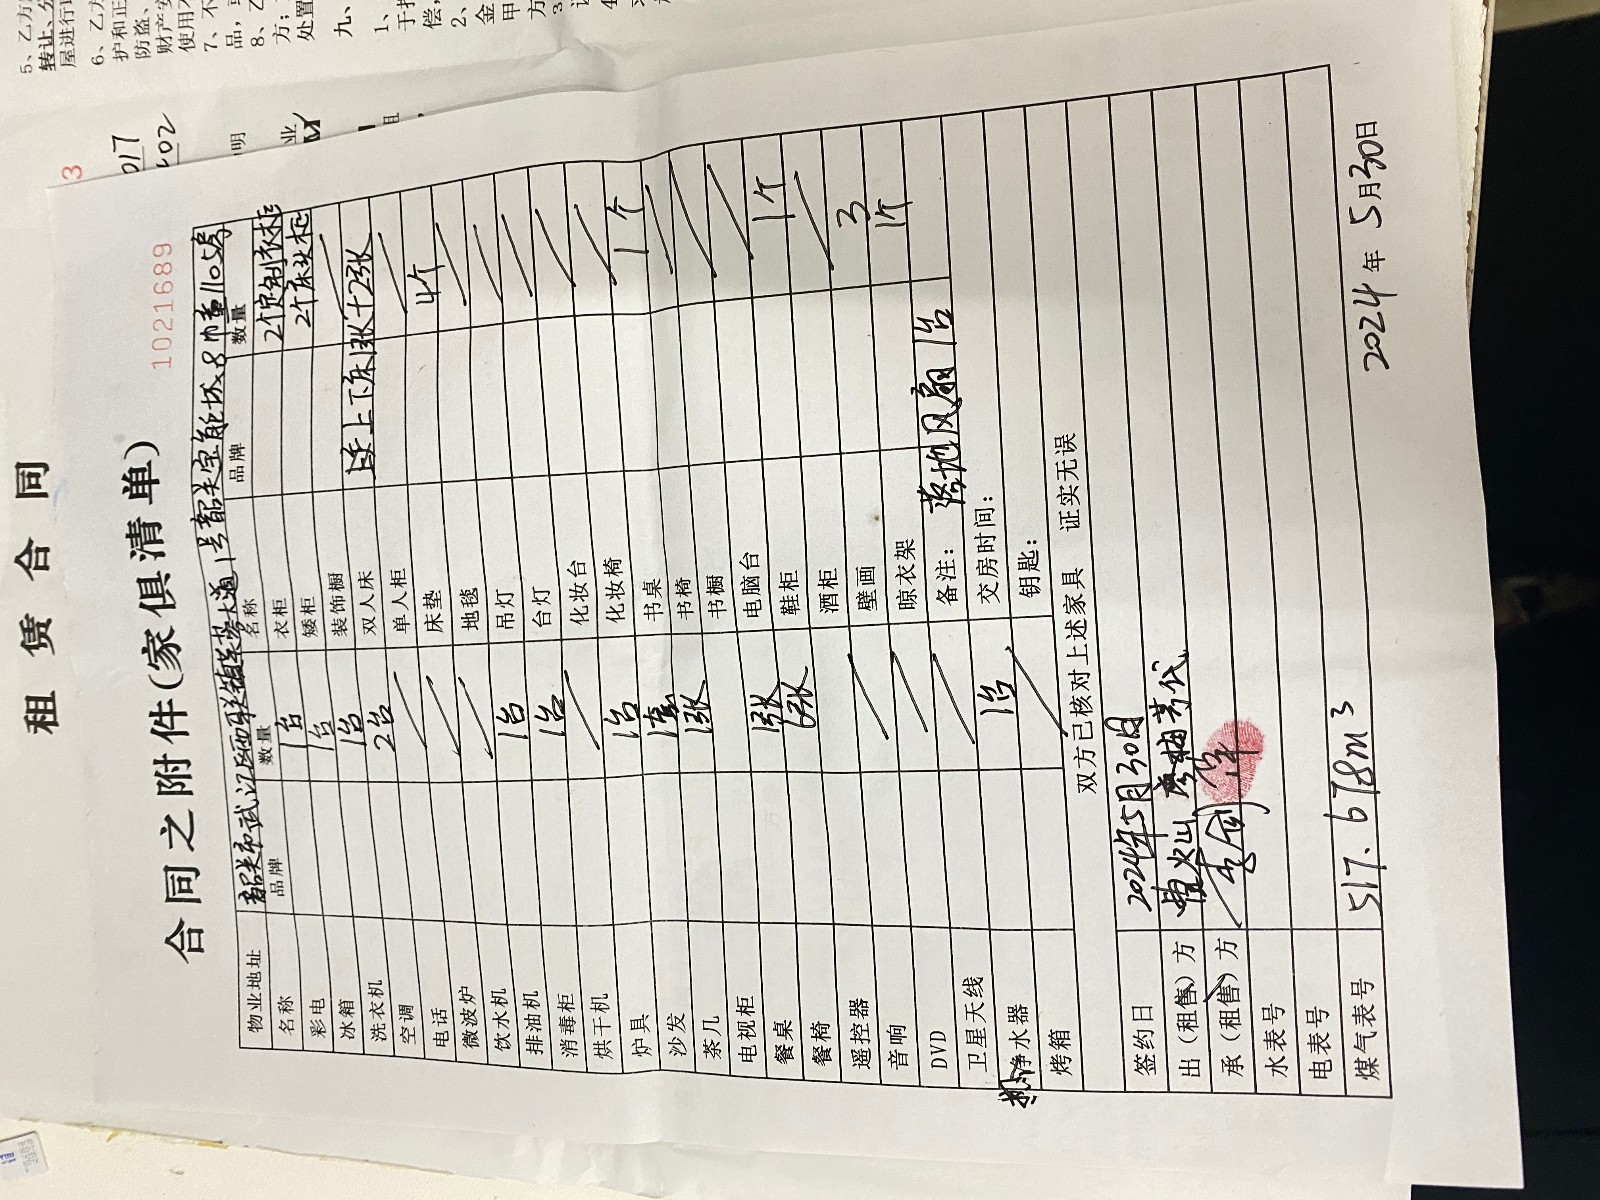 租 赁 合 同
1021689
合同之附件(家俱清单)
物业地址 韶关市武江区西联镇芙蓉大道1号韶关宝能城8幢1105房
名称 品牌 数量 名称 品牌 数量
彩电 1台 衣柜 2个定制衣柜
冰箱 1台 矮柜 2个床头柜
洗衣机 1台 装饰橱
空调 2台 双人床 上下床1张+2张
电话 单人柜
微波炉 床垫 4个
饮水机 地毯
排油机 1台 吊灯
消毒柜 1台 台灯
烘干机 化妆台
炉具 1台 化妆椅
沙发 1套 书桌 1个
茶几 1张 书椅
电视柜 书橱
餐桌 1张 电脑台
餐椅 6张 鞋柜 1个
遥控器 酒柜
音响 壁画 3
DVD 晾衣架 1个
卫星天线 备注: 落地风扇1台
净水器 1台 交房时间:
烤箱 钥匙:
双方已核对上述家具 证实无误
签约日 2024年5月30日
出(租售)方 代
承(租售)方
水表号
电表号
煤气表号 517.678m3
2024年5月30日